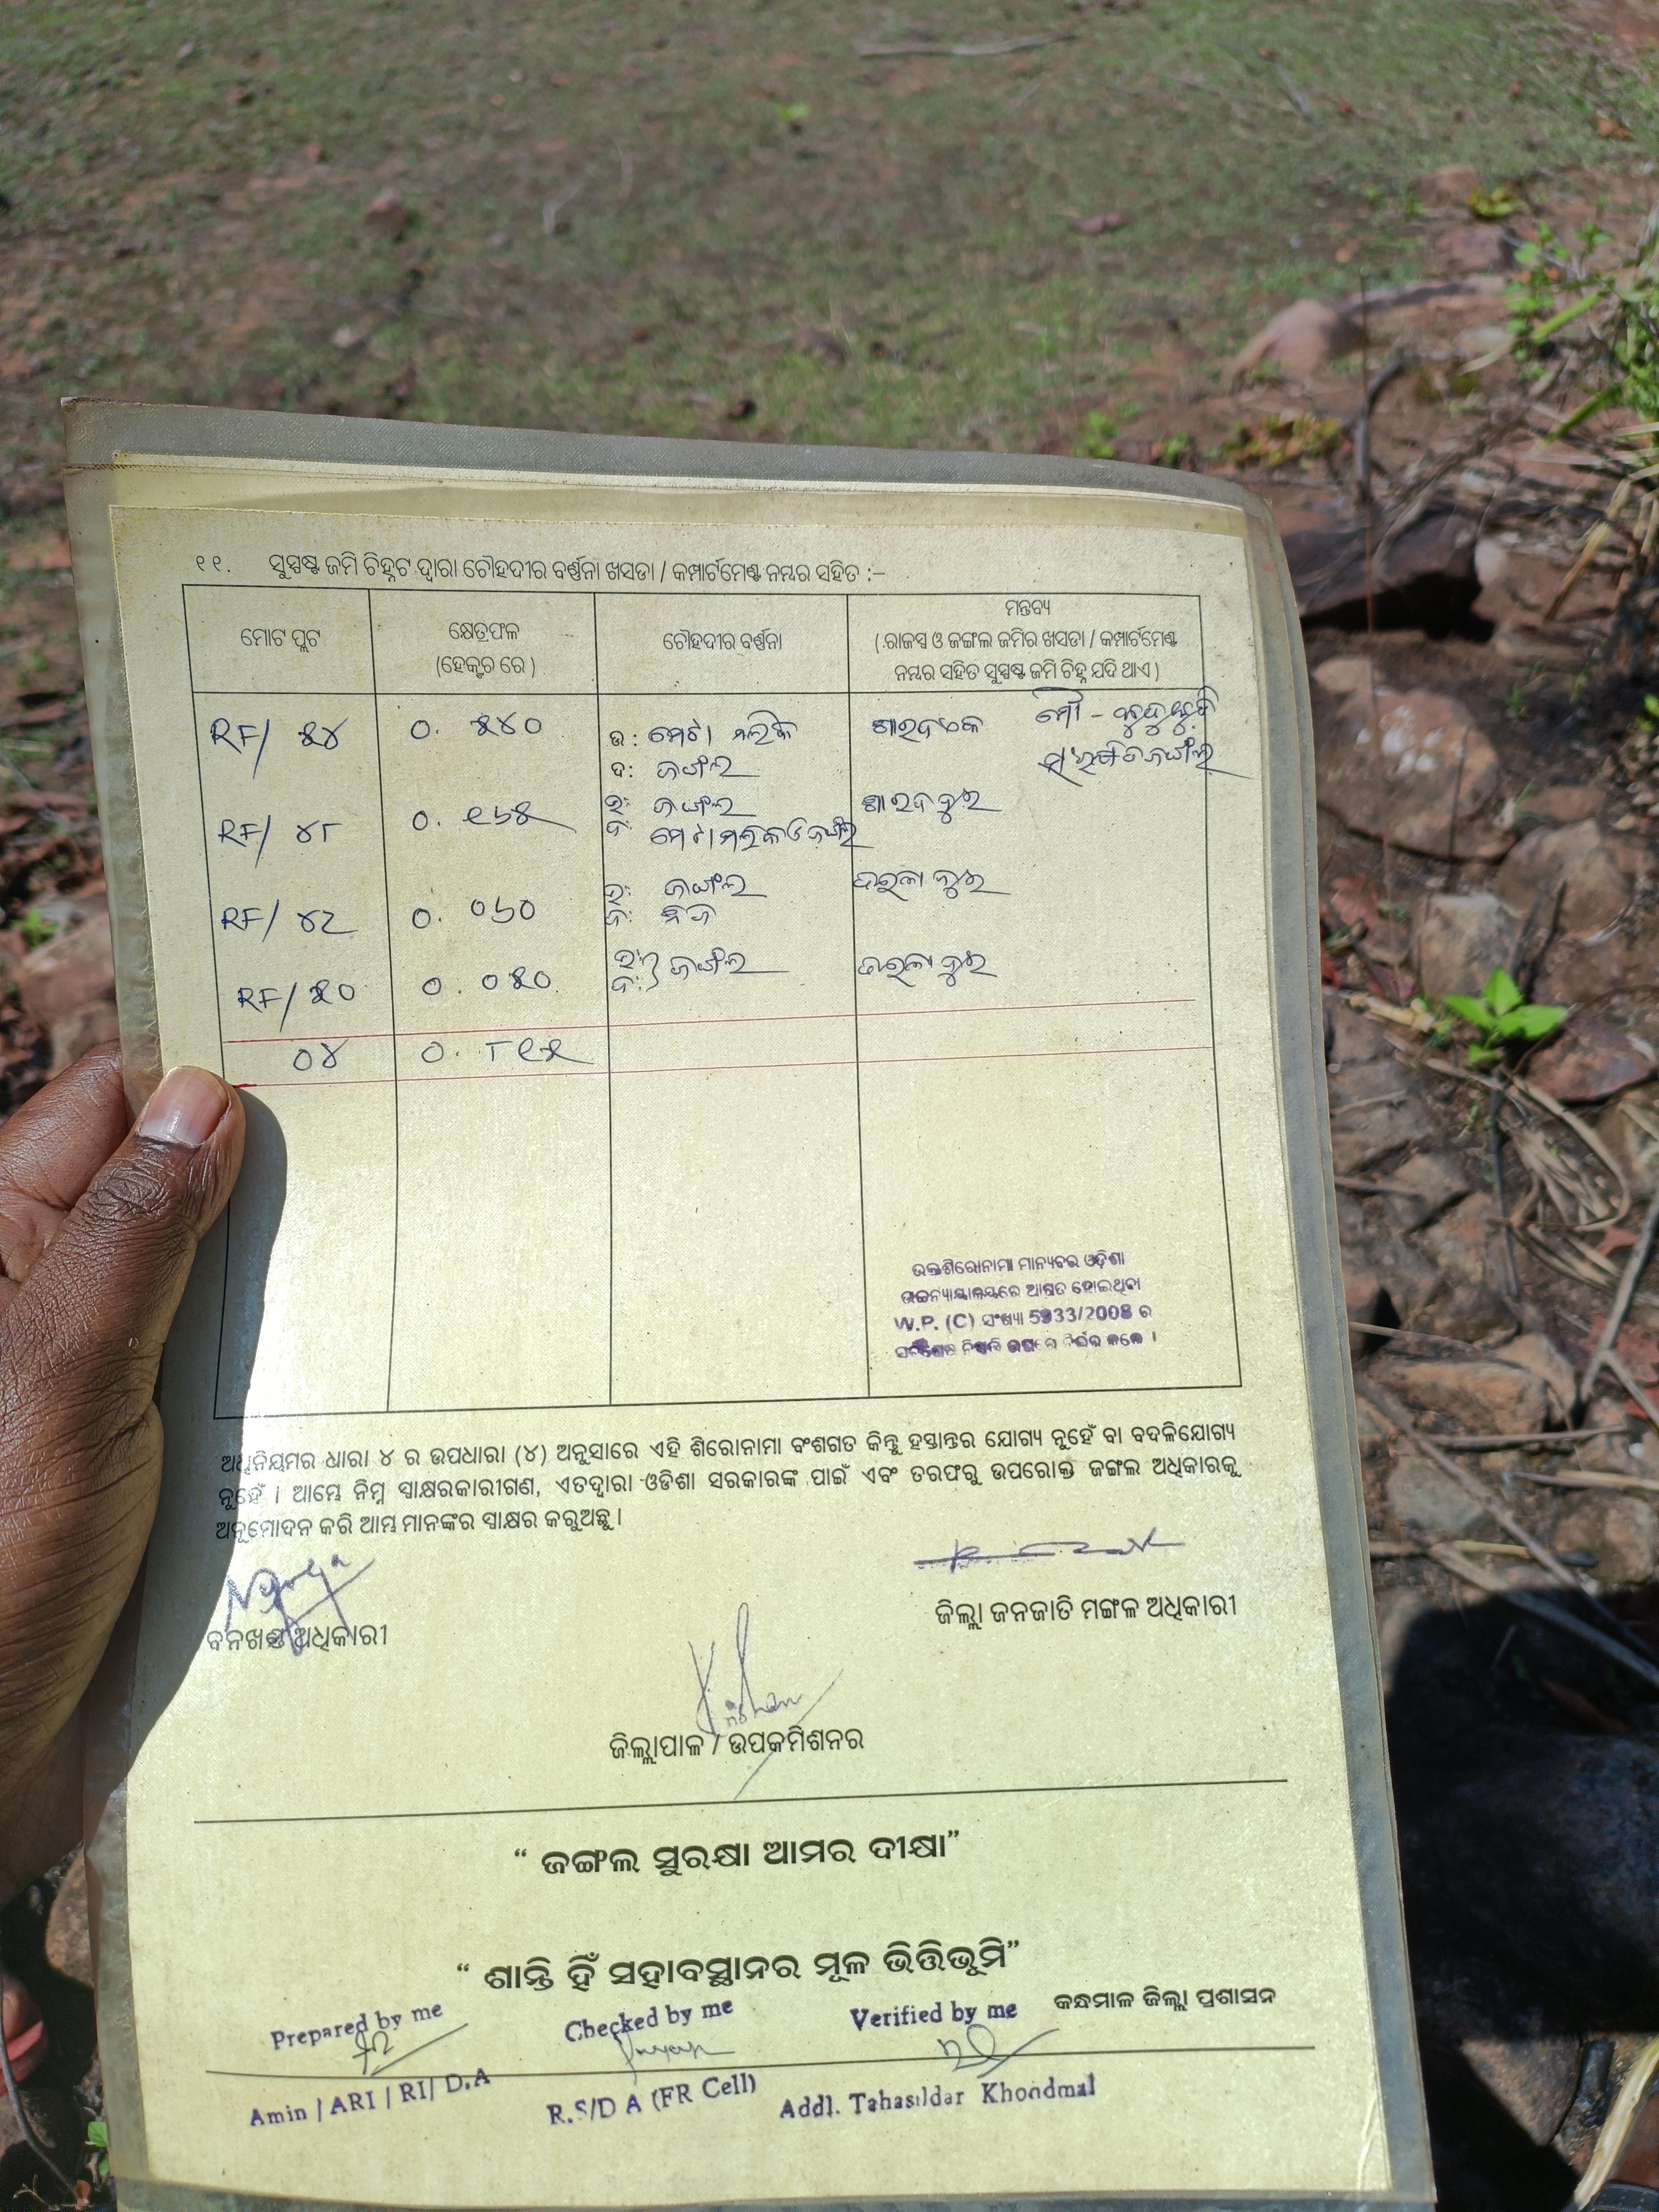 ୧୧. ସୁସ୍ପଷ୍ଟ ଜମି ଚିହ୍ନଟ ଦ୍ୱାରା ଚୌହଦୀର ବର୍ଣ୍ଣନା ଖସଡା / କମ୍ପାର୍ଟମେଣ୍ଟ ନମ୍ବର ସହିତ :–
ମୋଟ ପ୍ଲଟ
କ୍ଷେତ୍ରଫଳ
(ହେକ୍ଟର ରେ)
ଚୌହଦୀର ବର୍ଣ୍ଣନା
ମନ୍ତବ୍ୟ
(ରାଜସ୍ୱ ଓ ଜଙ୍ଗଲ ଜମିର ଖସଡା / କମ୍ପାର୍ଟମେଣ୍ଟ
ନମ୍ବର ସହିତ ସୁସ୍ପଷ୍ଟ ଜମି ଚିହ୍ନ ଯଦି ଥାଏ)
RF/ ୫୪ ୦. ୫୪୦ ଉ: ମେଟା ମଲିକ ଶାରଦ
ଦ: ଜଙ୍ଗଲ
RF/ ୪୮ ୦. ୧୬୫ ଉ: ଜଙ୍ଗଲ ଶାରଦ
ଦ: ମେଟା ମଲିକ ଓ ଜଙ୍ଗଲ
RF/ ୪୨ ୦. ୦୬୦ ଉ: ଜଙ୍ଗଲ
ଦ: ନିଜ
RF/ ୫୦ ୦. ୦୫୦ ଉ: ଦ: ଜଙ୍ଗଲ
୦୪ ୦. ୮୧୫
ଉକ୍ତ ଶିରୋନାମା ମାନ୍ୟବର ଓଡ଼ିଶା
ଉଚ୍ଚନ୍ୟାୟାଳୟରେ ଆଗତ ହୋଇଥିବା
W.P. (C) ସଂଖ୍ୟା 5933/2008 ର
ନିର୍ଭର କରେ ।
ଅଧିନିୟମର ଧାରା ୪ ର ଉପଧାରା (୪) ଅନୁସାରେ ଏହି ଶିରୋନାମା ବଂଶଗତ କିନ୍ତୁ ହସ୍ତାନ୍ତର ଯୋଗ୍ୟ ନୁହେଁ ବା ବଦଳିଯୋଗ୍ୟ
ନୁହେଁ । ଆମ୍ଭେ ନିମ୍ନ ସ୍ୱାକ୍ଷରକାରୀଗଣ, ଏତଦ୍ୱାରା ଓଡିଶା ସରକାରଙ୍କ ପାଇଁ ଏବଂ ତରଫରୁ ଉପରୋକ୍ତ ଜଙ୍ଗଲ ଅଧିକାରକୁ
ଅନୁମୋଦନ କରି ଆମ୍ଭ ମାନଙ୍କର ସ୍ୱାକ୍ଷର କରୁଅଛୁ ।
ବନଖଣ୍ଡ ଅଧିକାରୀ
ଜିଲ୍ଲା ଜନଜାତି ମଙ୍ଗଳ ଅଧିକାରୀ
ଜିଲ୍ଲାପାଳ / ଉପକମିଶନର
“ ଜଙ୍ଗଲ ସୁରକ୍ଷା ଆମର ଦୀକ୍ଷା”
“ ଶାନ୍ତି ହିଁ ସହାବସ୍ଥାନର ମୂଳ ଭିତ୍ତିଭୂମି”
କନ୍ଧମାଳ ଜିଲ୍ଲା ପ୍ରଶାସନ
Prepared by me Checked by me Verified by me
Amin / ARI / RI / D.A R.S/D A (FR Cell) Addl. Tahasildar Khondmal